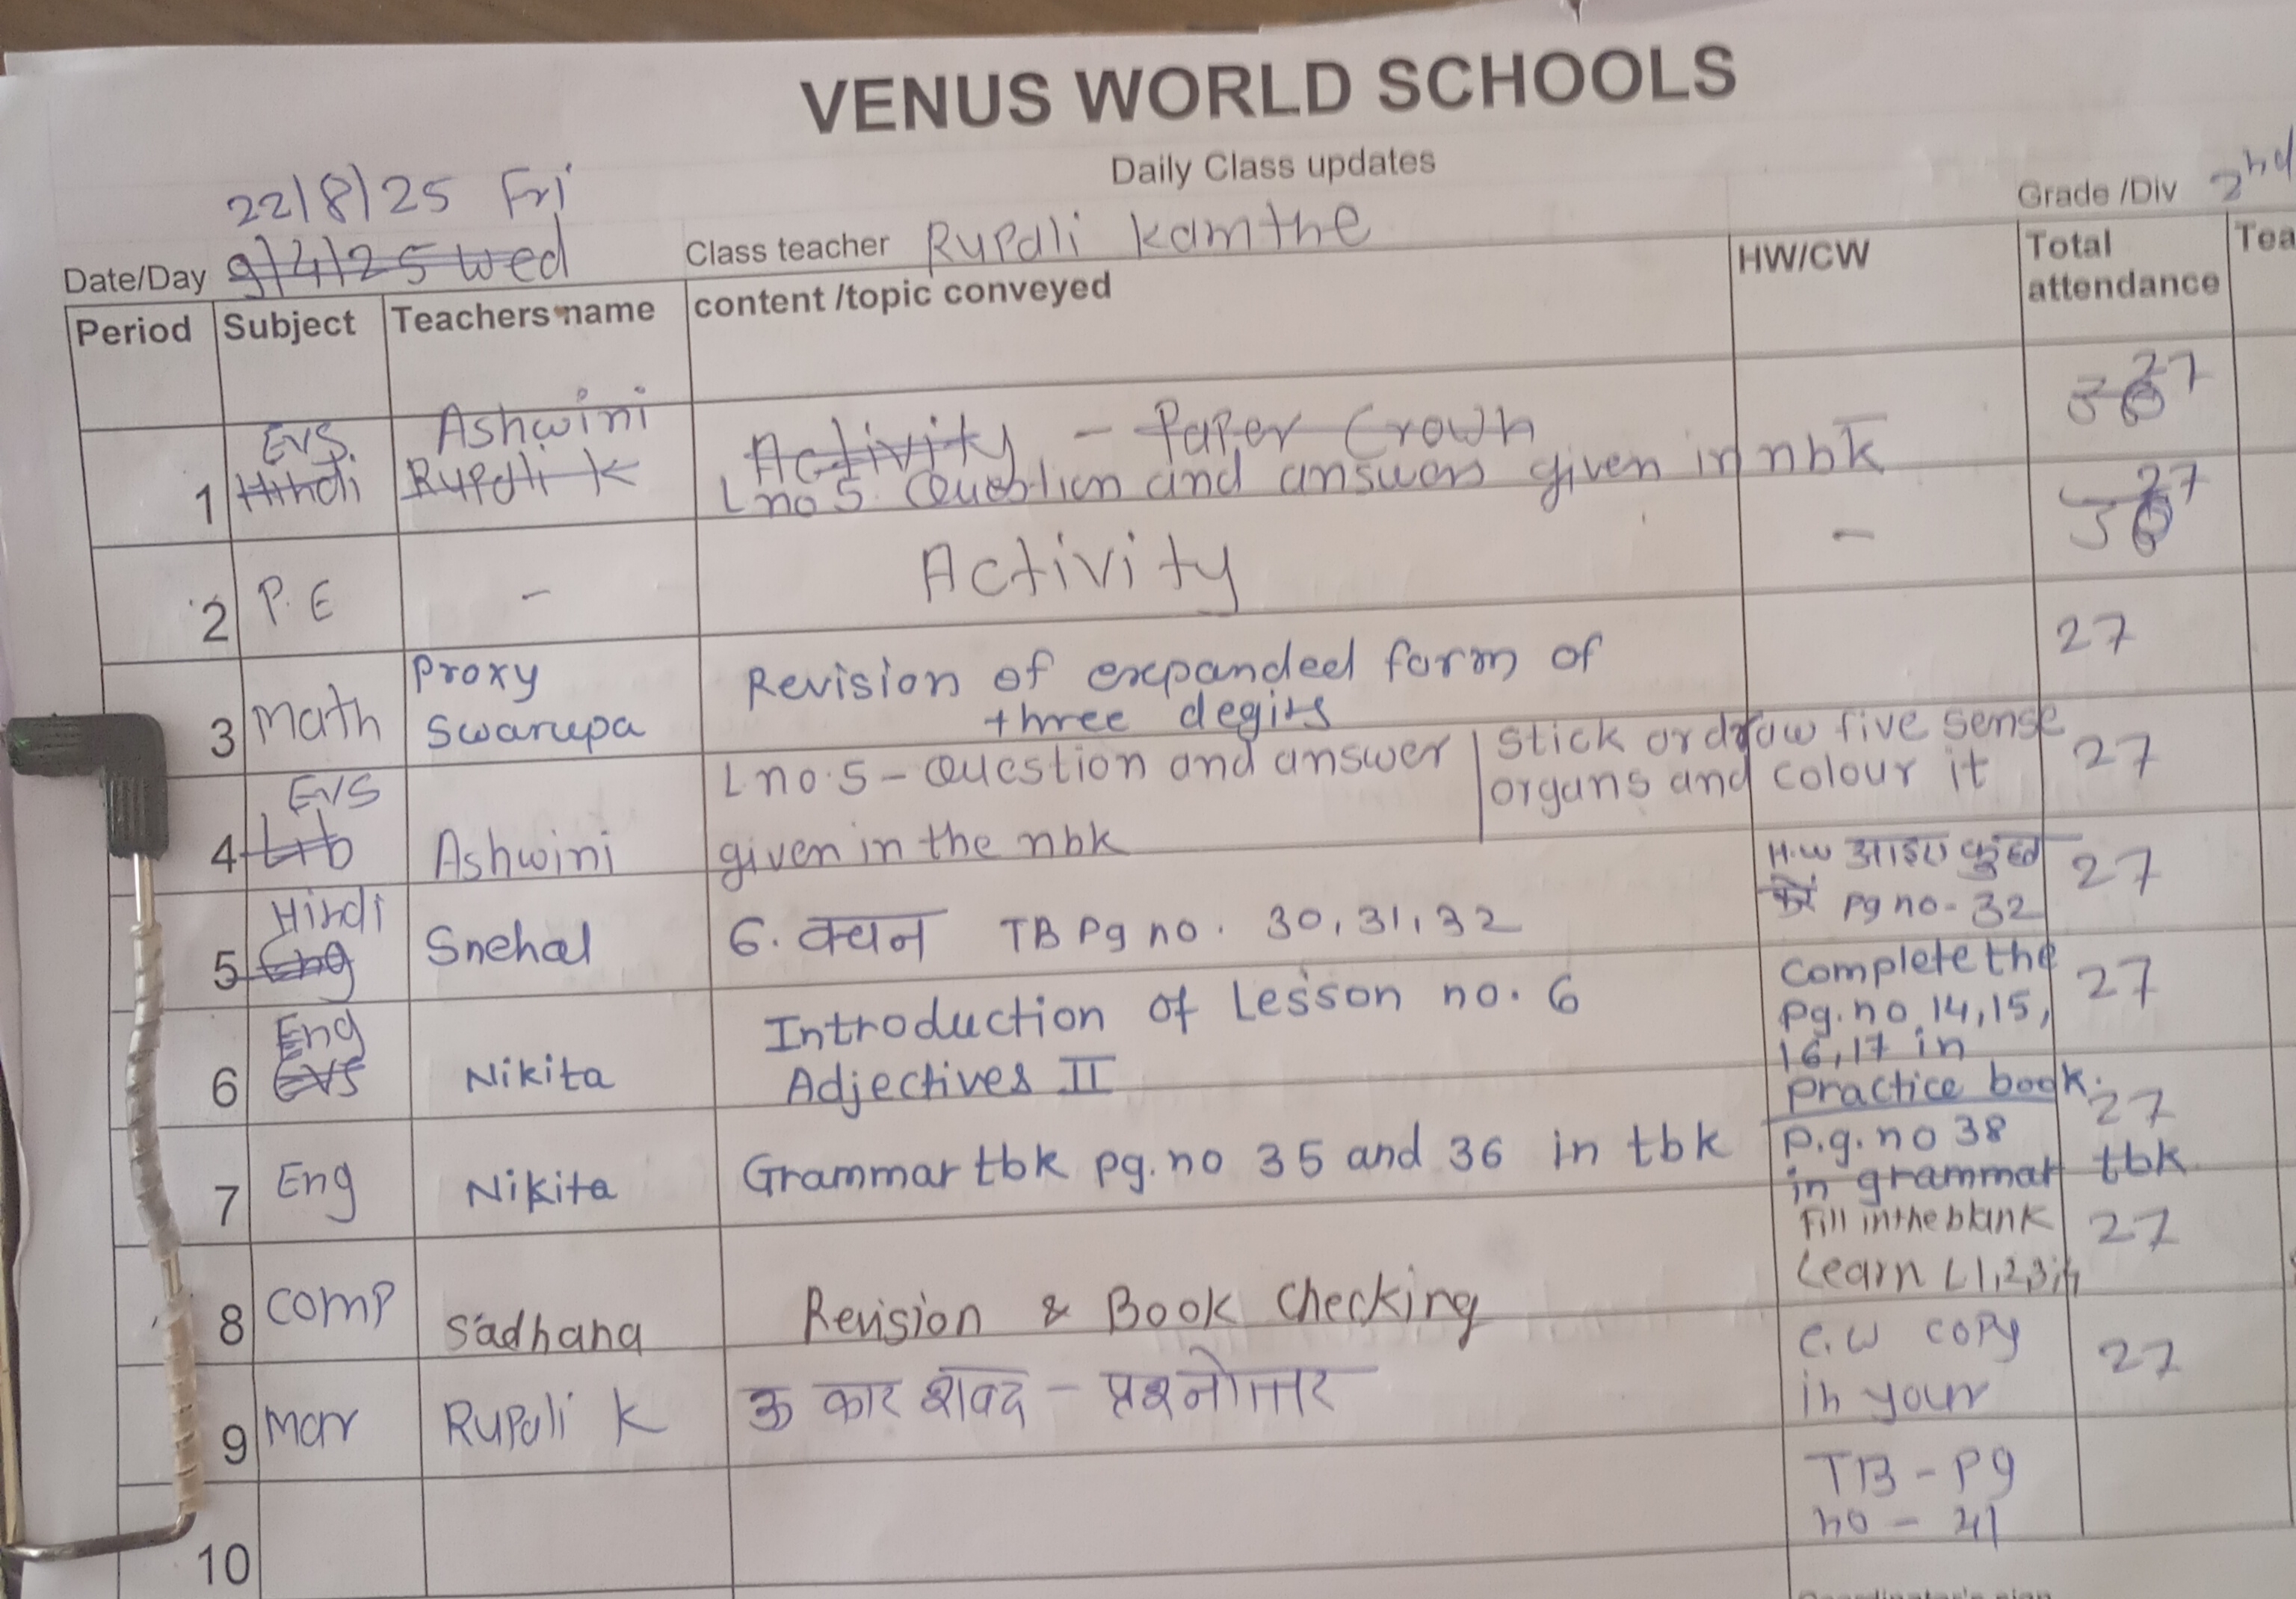 VENUS WORLD SCHOOLS
Daily Class updates
22/8/25 Fri
Grade /Div 2nd
Date/Day 9/4/25 Wed Class teacher Rupali Kamthe
Period Subject Teachers name content /topic conveyed HW/CW Total attendance Tea
EVS. Ashwini Activity - Paper Crown 27
1 Hindi Rupali K L no 5. Question and answers given in nbk
2 P.E - Activity - 27
3 Math Proxy Swarupa Revision of expanded form of 27
three degits
EVS L no.5 - Question and answer Stick or draw five sense 27
organs and colour it
4 Lib Ashwini given in the nbk
Hindi H.W आइए कुछ करें pg no- 32 27
5 Eng Snehal 6. वचन TB Pg no. 30,31,32
Eng Introduction of Lesson no. 6 Complete the 27
pg.no.14,15,
16,17 in
6 EVS Nikita Adjectives II practice book.
7 Eng Nikita Grammar tbk pg.no 35 and 36 in tbk p.g.no 38 27
in grammar tbk
Fill in the blank 27
8 Comp Sadhana Revision & Book Checking Learn L1,2,3,4
9 Mar Rupali K ऊ कार शब्द - प्रश्नोत्तर C.W copy 27
in your
TB - Pg
no - 41
10